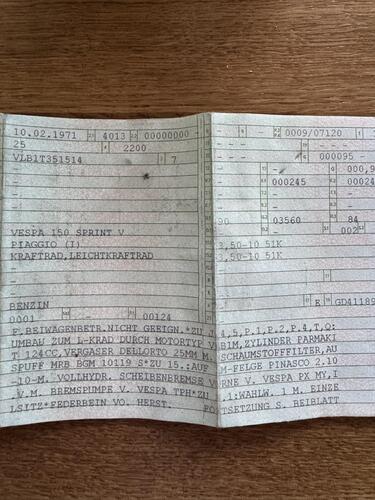 10.02.1971 4013 00000000 - - - 0009/07120
25 2200 - - -
VLB1T351514 7 - - 000095 -
- - - 000,9
- - 000245 00024
-
90 03560 84
VESPA 150 SPRINT V - - 002
PIAGGIO (I) 3,50-10 51K
KRAFTRAD,LEICHTKRAFTRAD 3,50-10 51K
-
BENZIN E GD41189
0001 - 00124
F.BEIWAGENBETR.NICHT GEEIGN.*ZU J,4,5,P.1,P.2,P.4,T,Q:
UMBAU ZUM L-KRAD DURCH MOTORTYP VSB1M,ZYLINDER PARMAKI
T 124CC,VERGASER DELLORTO 25MM M.SCHAUMSTOFFFILTER,AU
SPUFF MRB BGM 10119 S*ZU 15.:AUF M-FELGE PINASCO 2.10
-10-M. VOLLHYDR. SCHEIBENBREMSE VORNE V. VESPA PX MY,I
.V.M. BREMSPUMPE V. VESPA TPH*ZU .1:WAHLW. 1 M. EINZE
LSITZ*FEDERBEIN VO. HERST. FORTSETZUNG S. BEIBLATT